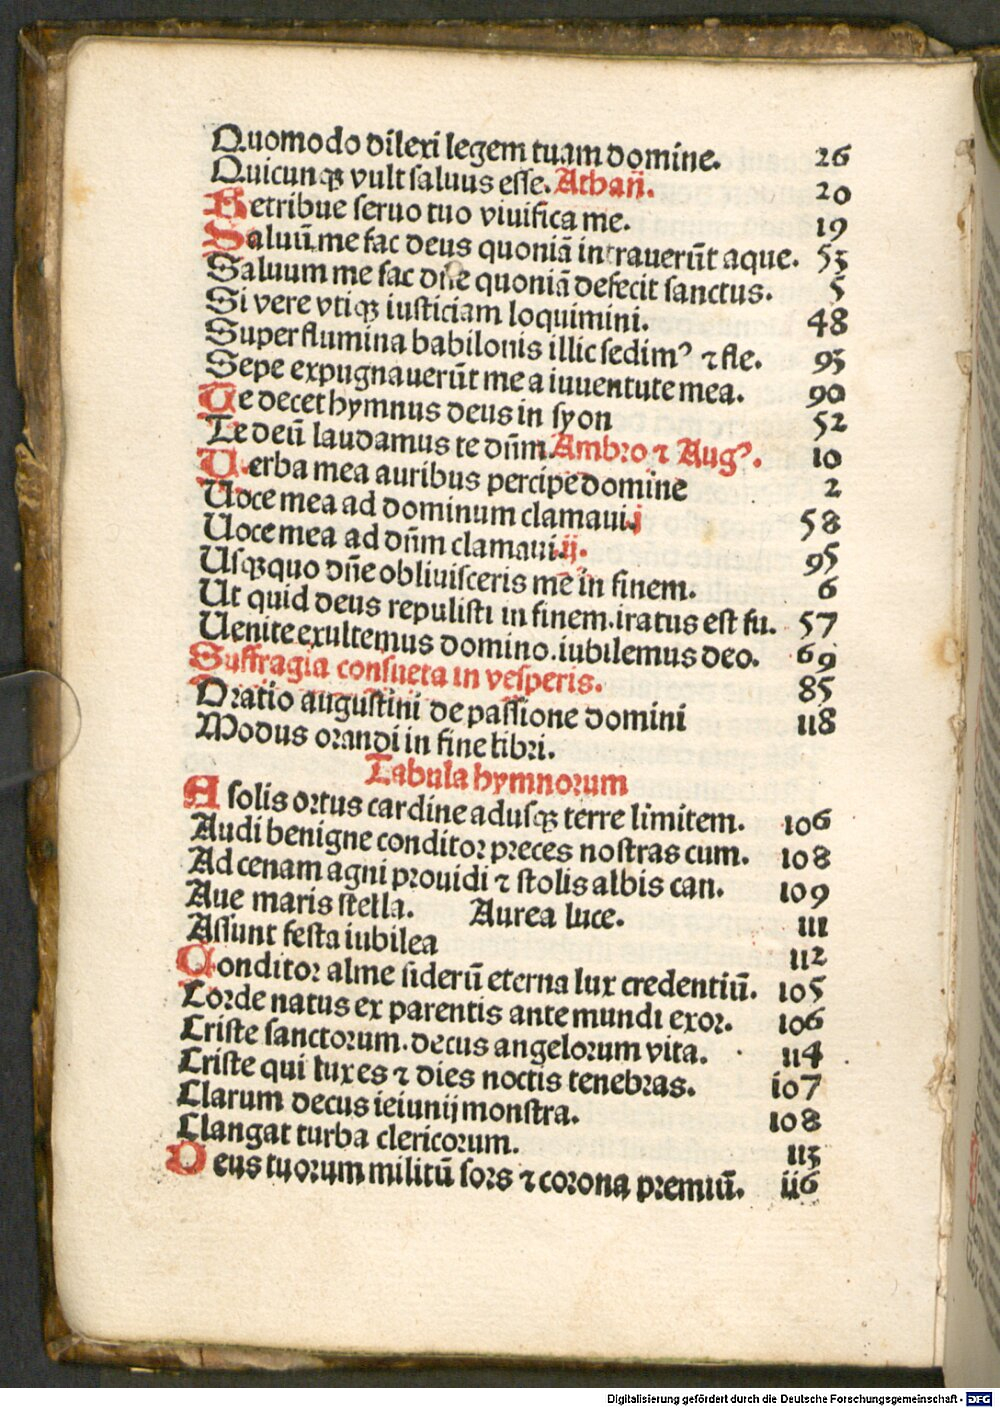 Quomodo dilexi legem tuam domine. 26
Quicunqꝫ vult saluus esse. Athañ. 20
Retribue seruo tuo viuifica me. 19
Saluū me fac deus quoniā intrauerūt aque. 53
Saluum me fac dñe quoniā defecit sanctus. 5
Si vere vtiqꝫ iusticiam loquimini. 48
Super flumina babilonis illic sedimꝰ ⁊ fle. 93
Sepe expugnauerūt me a iuuentute mea. 90
Te decet hymnus deus in syon 52
Te deū laudamus te dñm. Ambro ⁊ Augꝰ. 10
Uerba mea auribus percipe domine 2
Uoce mea ad dominum clamaui. j 58
Uoce mea ad dñm clamaui. ij. 95
Usqꝫquo dñe obliuisceris me in finem. 6
Ut quid deus repulisti in finem. iratus est fu. 57
Uenite exultemus domino. iubilemus deo. 69
Suffragia consueta in vesperis. 85
Oratio augustini de passione domini 118
Modus orandi in fine libri.
Tabula hymnorum
A solis ortus cardine adusqꝫ terre limitem. 106
Audi benigne conditor preces nostras cum. 108
Ad cenam agni prouidi ⁊ stolis albis can. 109
Aue maris stella. Aurea luce. 111
Assunt festa iubilea 112
Conditor alme siderū eterna lux credentiū. 105
Corde natus ex parentis ante mundi exor. 106
Criste sanctorum. decus angelorum vita. 114
Criste qui lux es ⁊ dies noctis tenebras. 107
Clarum decus ieiunij monstra. 108
Clangat turba clericorum. 113
Deus tuorum militū sors ⁊ corona premiū. 116
Digitalisierung gefördert durch die Deutsche Forschungsgemeinschaft - DFG